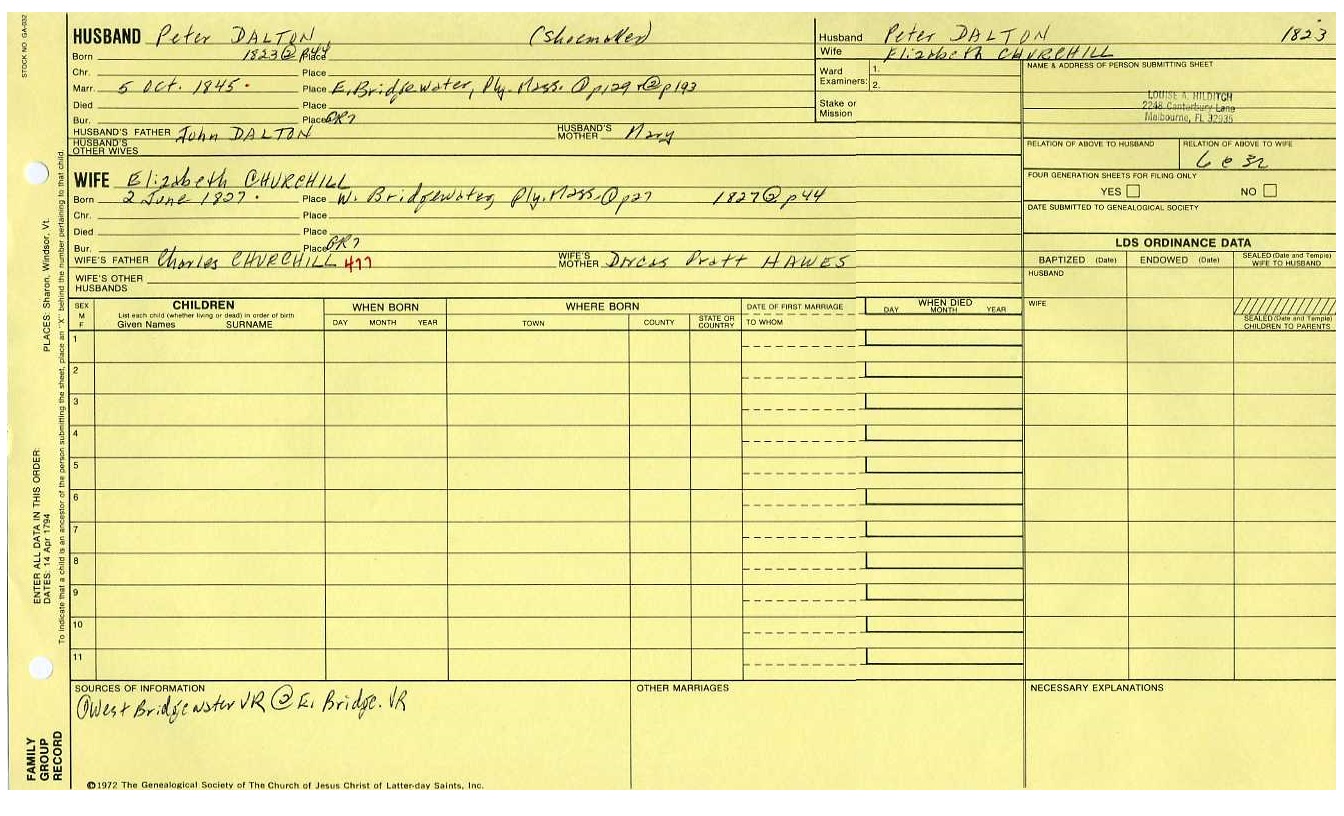 STOCK NO. GA-032
HUSBAND Peter DALTON (Shoemaker)
Born 1823②p44 Place
Chr. Place
Marr. 5 Oct. 1845. Place E. Bridgewater, Ply. Mass. ①p129 ②p193
Died Place
Bur. Place
HUSBAND'S FATHER John DALTON HUSBAND'S MOTHER Mary
HUSBAND'S OTHER WIVES
Husband Peter DALTON 1823
Wife Elizabeth CHURCHILL
Ward Examiners: 1.
2.
Stake or Mission
NAME & ADDRESS OF PERSON SUBMITTING SHEET
LOUISE A. HILDITCH
2248 Canterbury Lane
Melbourne, FL 32935
RELATION OF ABOVE TO HUSBAND RELATION OF ABOVE TO WIFE
6 c 3r
FOUR GENERATION SHEETS FOR FILING ONLY
YES NO
DATE SUBMITTED TO GENEALOGICAL SOCIETY
WIFE Elizabeth CHURCHILL
Born 2 June 1827. Place W. Bridgewater, Ply. Mass. ①p27 1827②p44
Chr. Place
Died Place
Bur. Place
WIFE'S FATHER Charles CHURCHILL 477 WIFE'S MOTHER Dorcas Pratt HAWES
WIFE'S OTHER HUSBANDS
LDS ORDINANCE DATA
BAPTIZED (Date) ENDOWED (Date) SEALED (Date and Temple) WIFE TO HUSBAND
HUSBAND
WIFE
SEALED (Date and Temple) CHILDREN TO PARENTS
SEX M F
CHILDREN
List each child (whether living or dead) in order of birth
Given Names SURNAME
WHEN BORN
DAY MONTH YEAR
WHERE BORN
TOWN COUNTY STATE OR COUNTRY
DATE OF FIRST MARRIAGE
TO WHOM
WHEN DIED
DAY MONTH YEAR
1
2
3
4
5
6
7
8
9
10
11
SOURCES OF INFORMATION
①West Bridgewater VR ②E. Bridge. VR
OTHER MARRIAGES
NECESSARY EXPLANATIONS
©1972 The Genealogical Society of The Church of Jesus Christ of Latter-day Saints, Inc.
FAMILY GROUP RECORD
ENTER ALL DATA IN THIS ORDER:
DATES: 14 Apr 1794
PLACES: Sharon, Windsor, Vt.
To indicate that a child is an ancestor of the person submitting the sheet, place an "X" behind the number pertaining to that child.